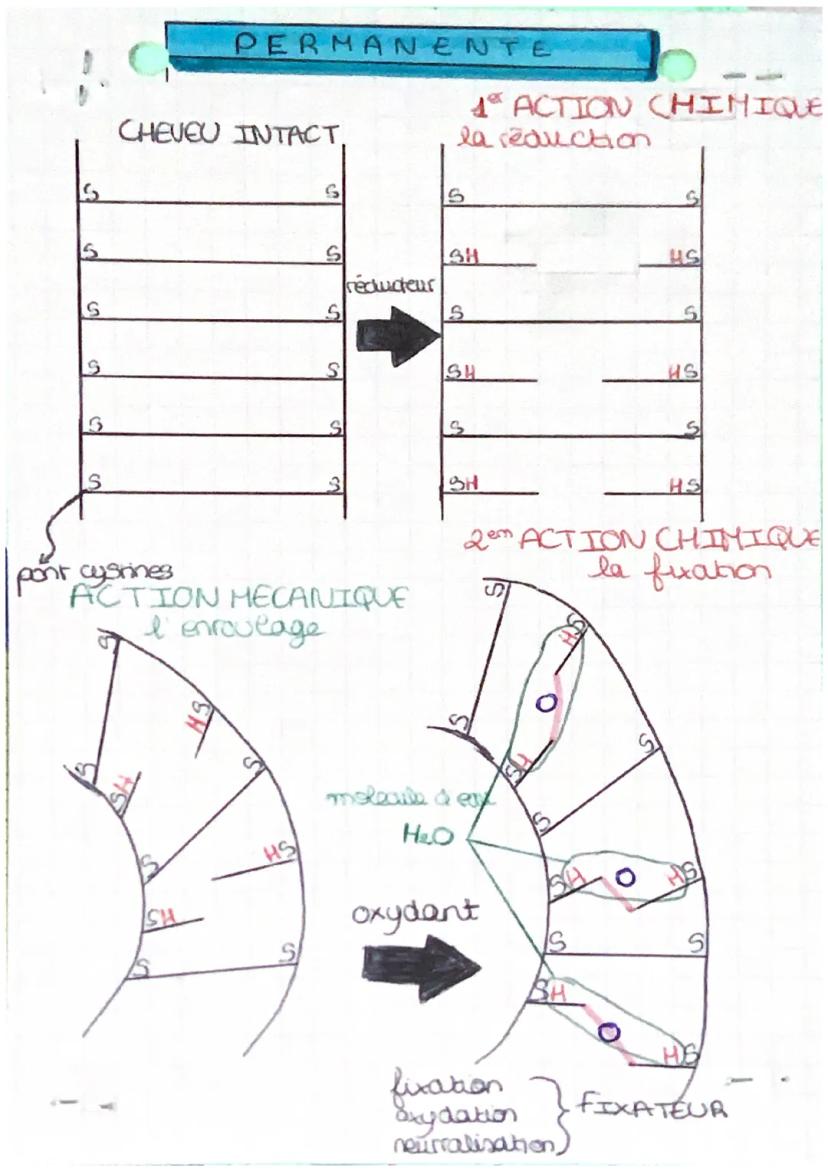 PERMANENTE
CHEVEU INTACT
1er ACTION CHIMIQUE
la réduction
S S
S S
S S
S S
S S
S S
réducteur
S S
SH HS
S S
SH HS
S S
SH HS
pont cystines
ACTION MECANIQUE
l'enroulage
2em ACTION CHIMIQUE
la fixation
S
HS
S
SH
S
S
HS
SH
S S
S
HS
O
S
SH
S
S
SH O HS
S S
SH O HS
molécule d'eau
H2O
oxydant
fixation
oxydation
neutralisation
FIXATEUR